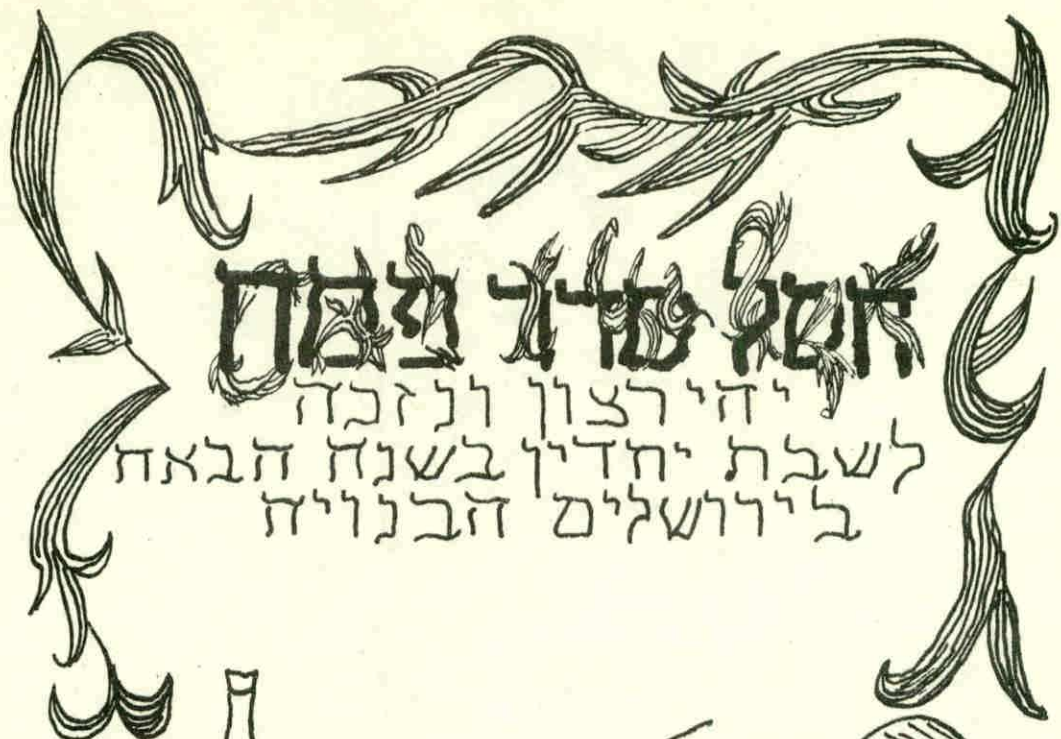 חסל סדר פסח
יהי רצון ונזכה
לשבת יחדין בשנה הבאה
בירושלים הבנויה